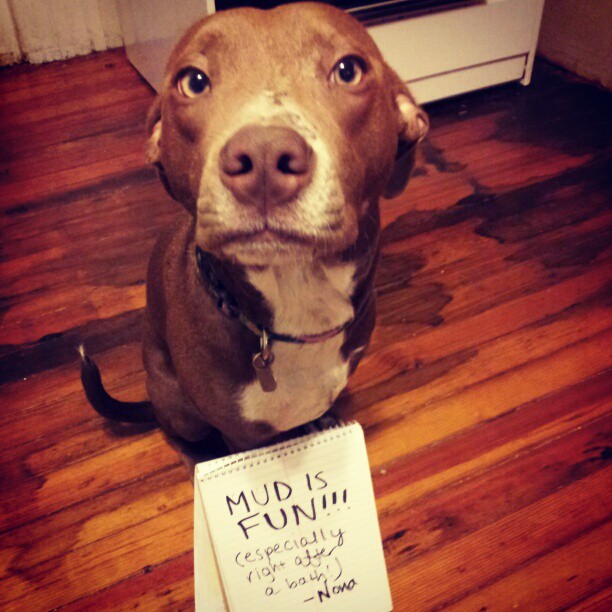 MUD IS
FUN!!!
(especially
right after
a bath!)
-Nona